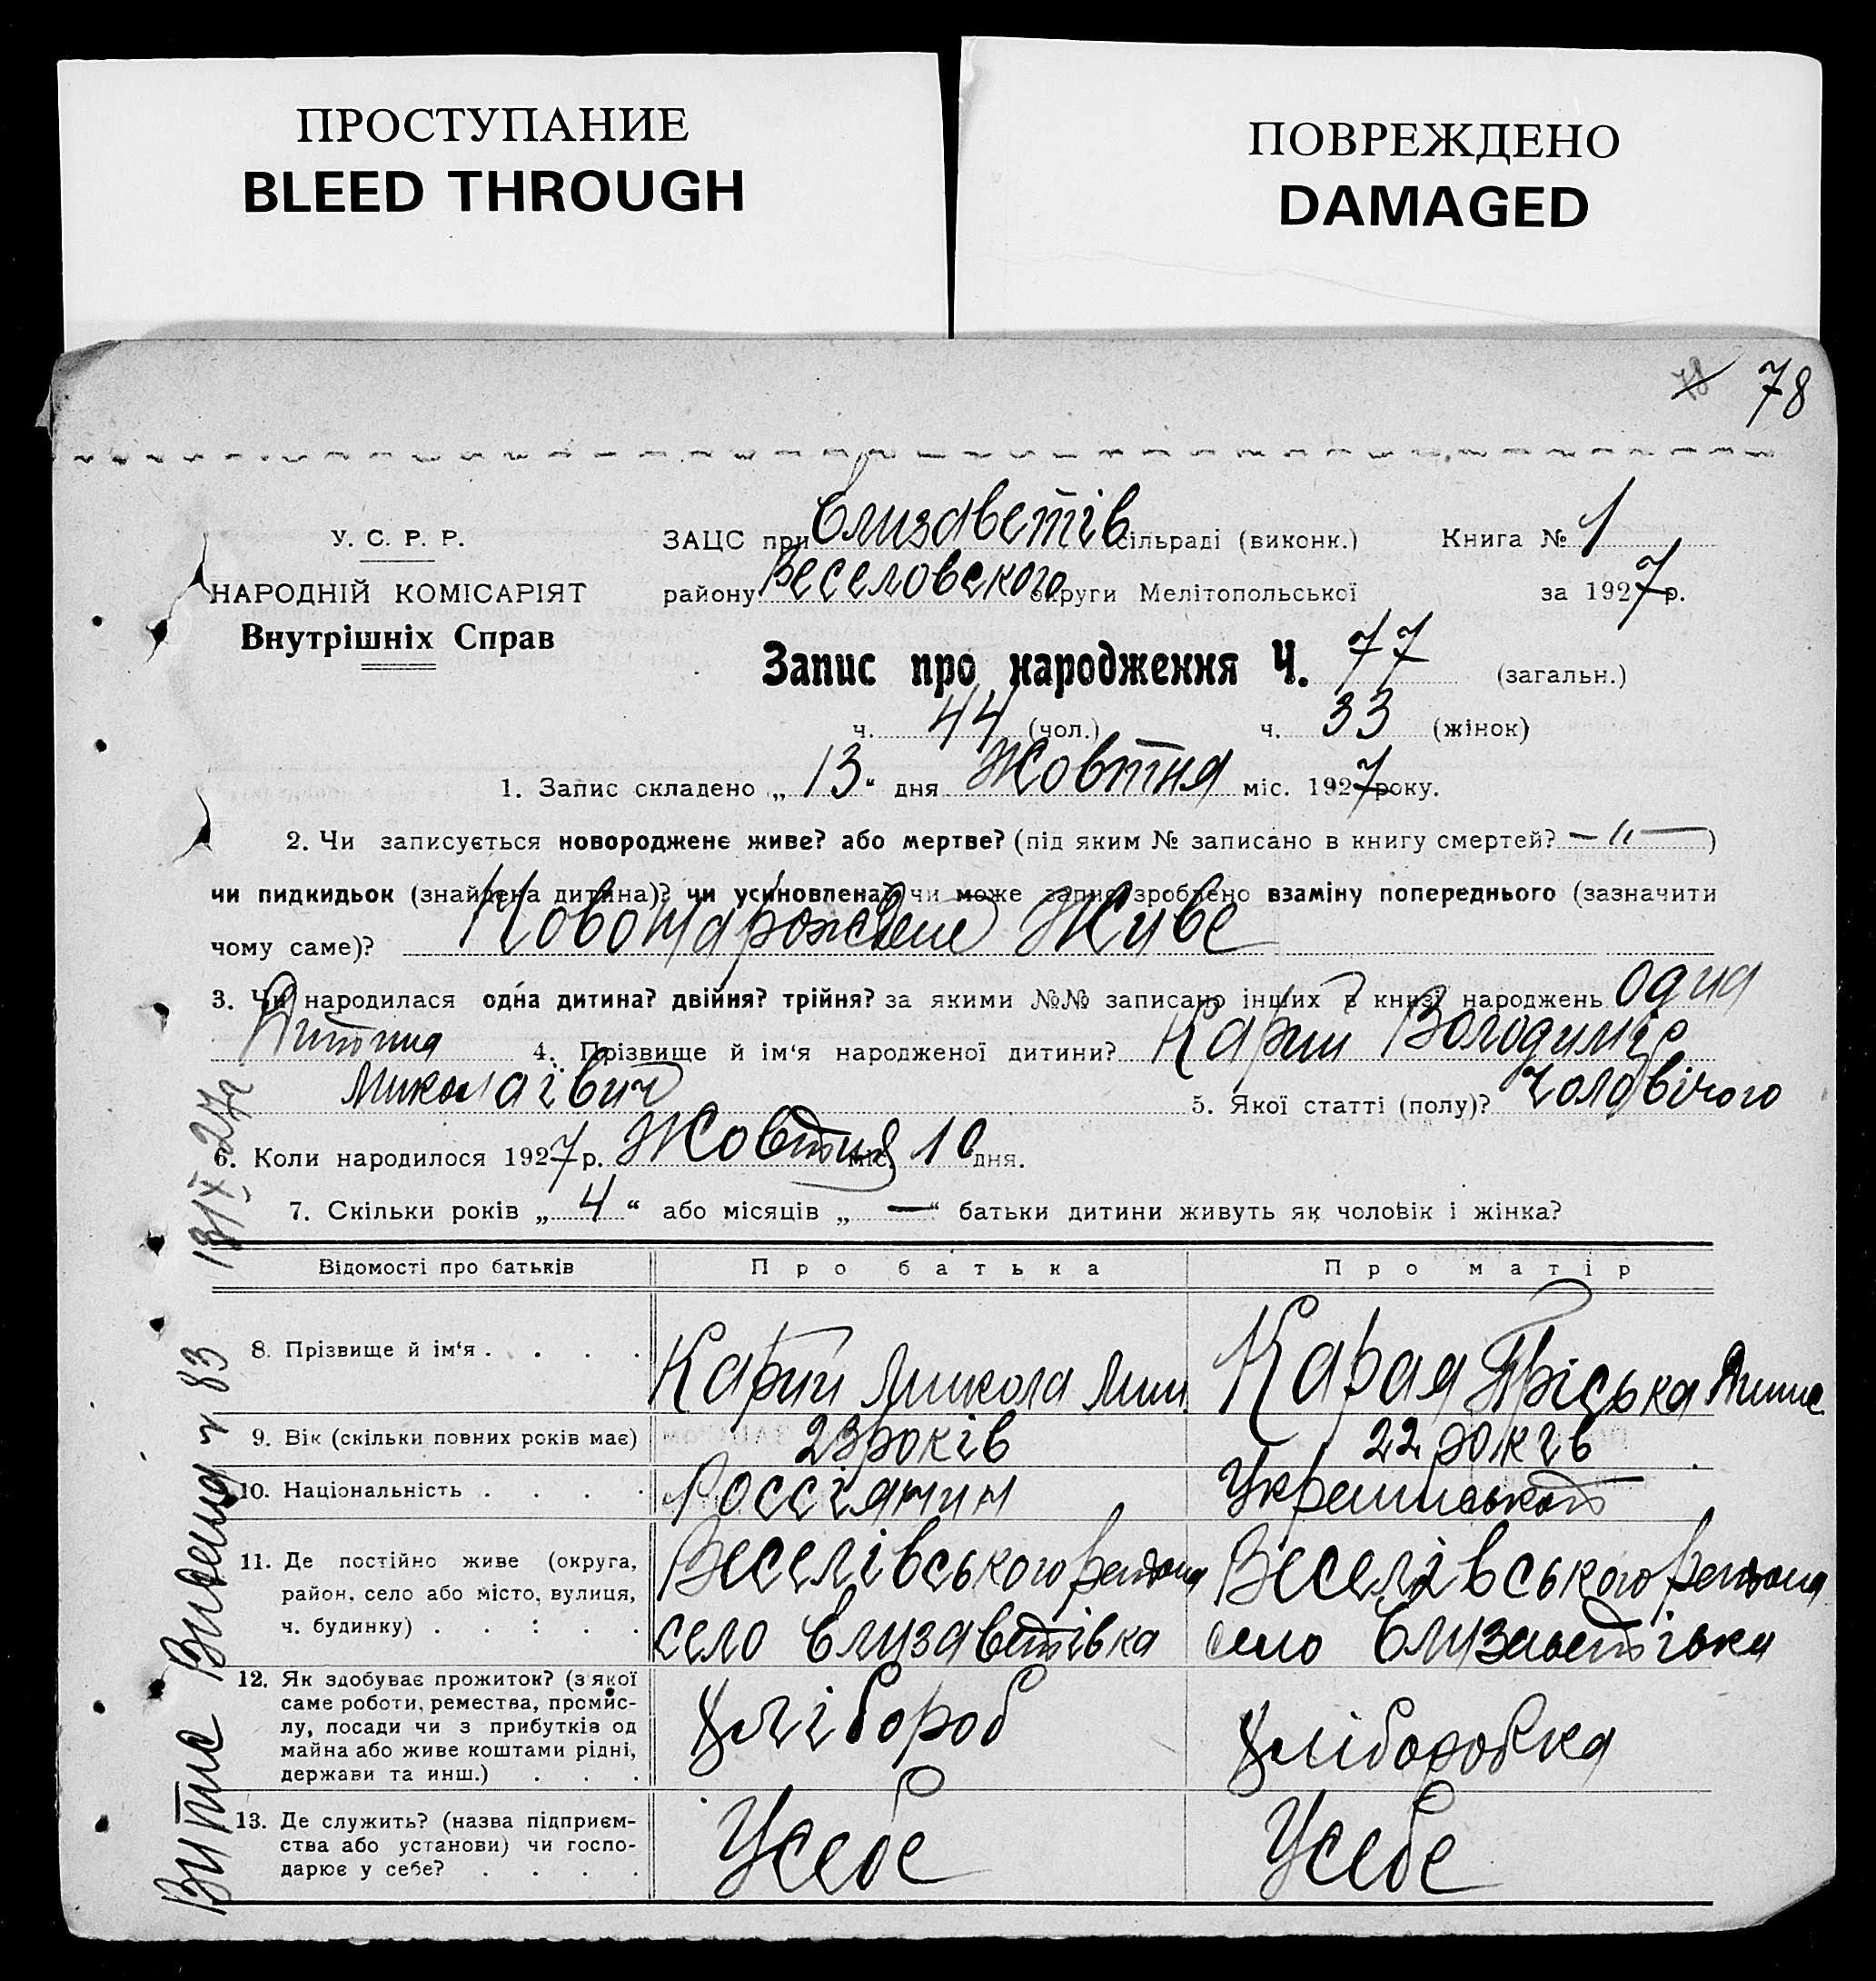 ПРОСТУПАНИЕ
BLEED THROUGH
ПОВРЕЖДЕНО
DAMAGED
78 78
У. С. Р. Р.
НАРОДНІЙ КОМІСАРІЯТ
Внутрішніх Справ
ЗАЦС при Єлизаветів сільраді (виконк.) Книга № 1
району Веселовского округи Мелітопольської за 1927 р.
Запис про народження Ч. 77 (загальн.)
ч. 44 (чол.) ч. 33 (жінок)
1. Запис складено „ 13 “ дня Жовтня міс. 1927 року.
2. Чи записується новороджене живе? або мертве? (під яким № записано в книгу смертей? — „ — )
чи пидкидьок (знайдена дитина)? чи усиновлена? чи може запис зроблено взаміну попереднього (зазначити
чому саме)? Новонарождене Живе
3. Чи народилася одна дитина? двійня? трійня? за якими №№ записано інших в книзі народжень одна
Дитина 4. Прізвище й ім‘я народженої дитини? Карий Володимір
Миколаівич 5. Якої статті (полу)? чоловічого
6. Коли народилося 1927 р. Жовтня міс. 10 дня.
7. Скільки років „ 4 “ або місяців „ — “ батьки дитини живуть як чоловік і жінка?
Відомості про батьків Про батька Про матір
8. Прізвище й ім‘я . . . . Карий Микола Мин. Карая Пріська
9. Вік (скільки повних років має) 23 років 22 років
10. Національність . . . . Россіянин Украинська
11. Де постійно живе (округа, район, село або місто, вулиця, ч. будинку) . . : . . Веселівського района Веселівського района
село Єлизаветівка село Єлизаветівка
12. Як здобуває прожиток? (з якої
саме роботи, ремества, промис-
лу, посади чи з прибутків од
майна або живе коштами рідні,
держави та инш.) . . . Хлібороб Хліборобка
13. Де служить? (назва підприєм-
ства або установи) чи госпо-
дарює у себе? . . . . У себе У себе
Витяг Видена ч 83 13/X 27р